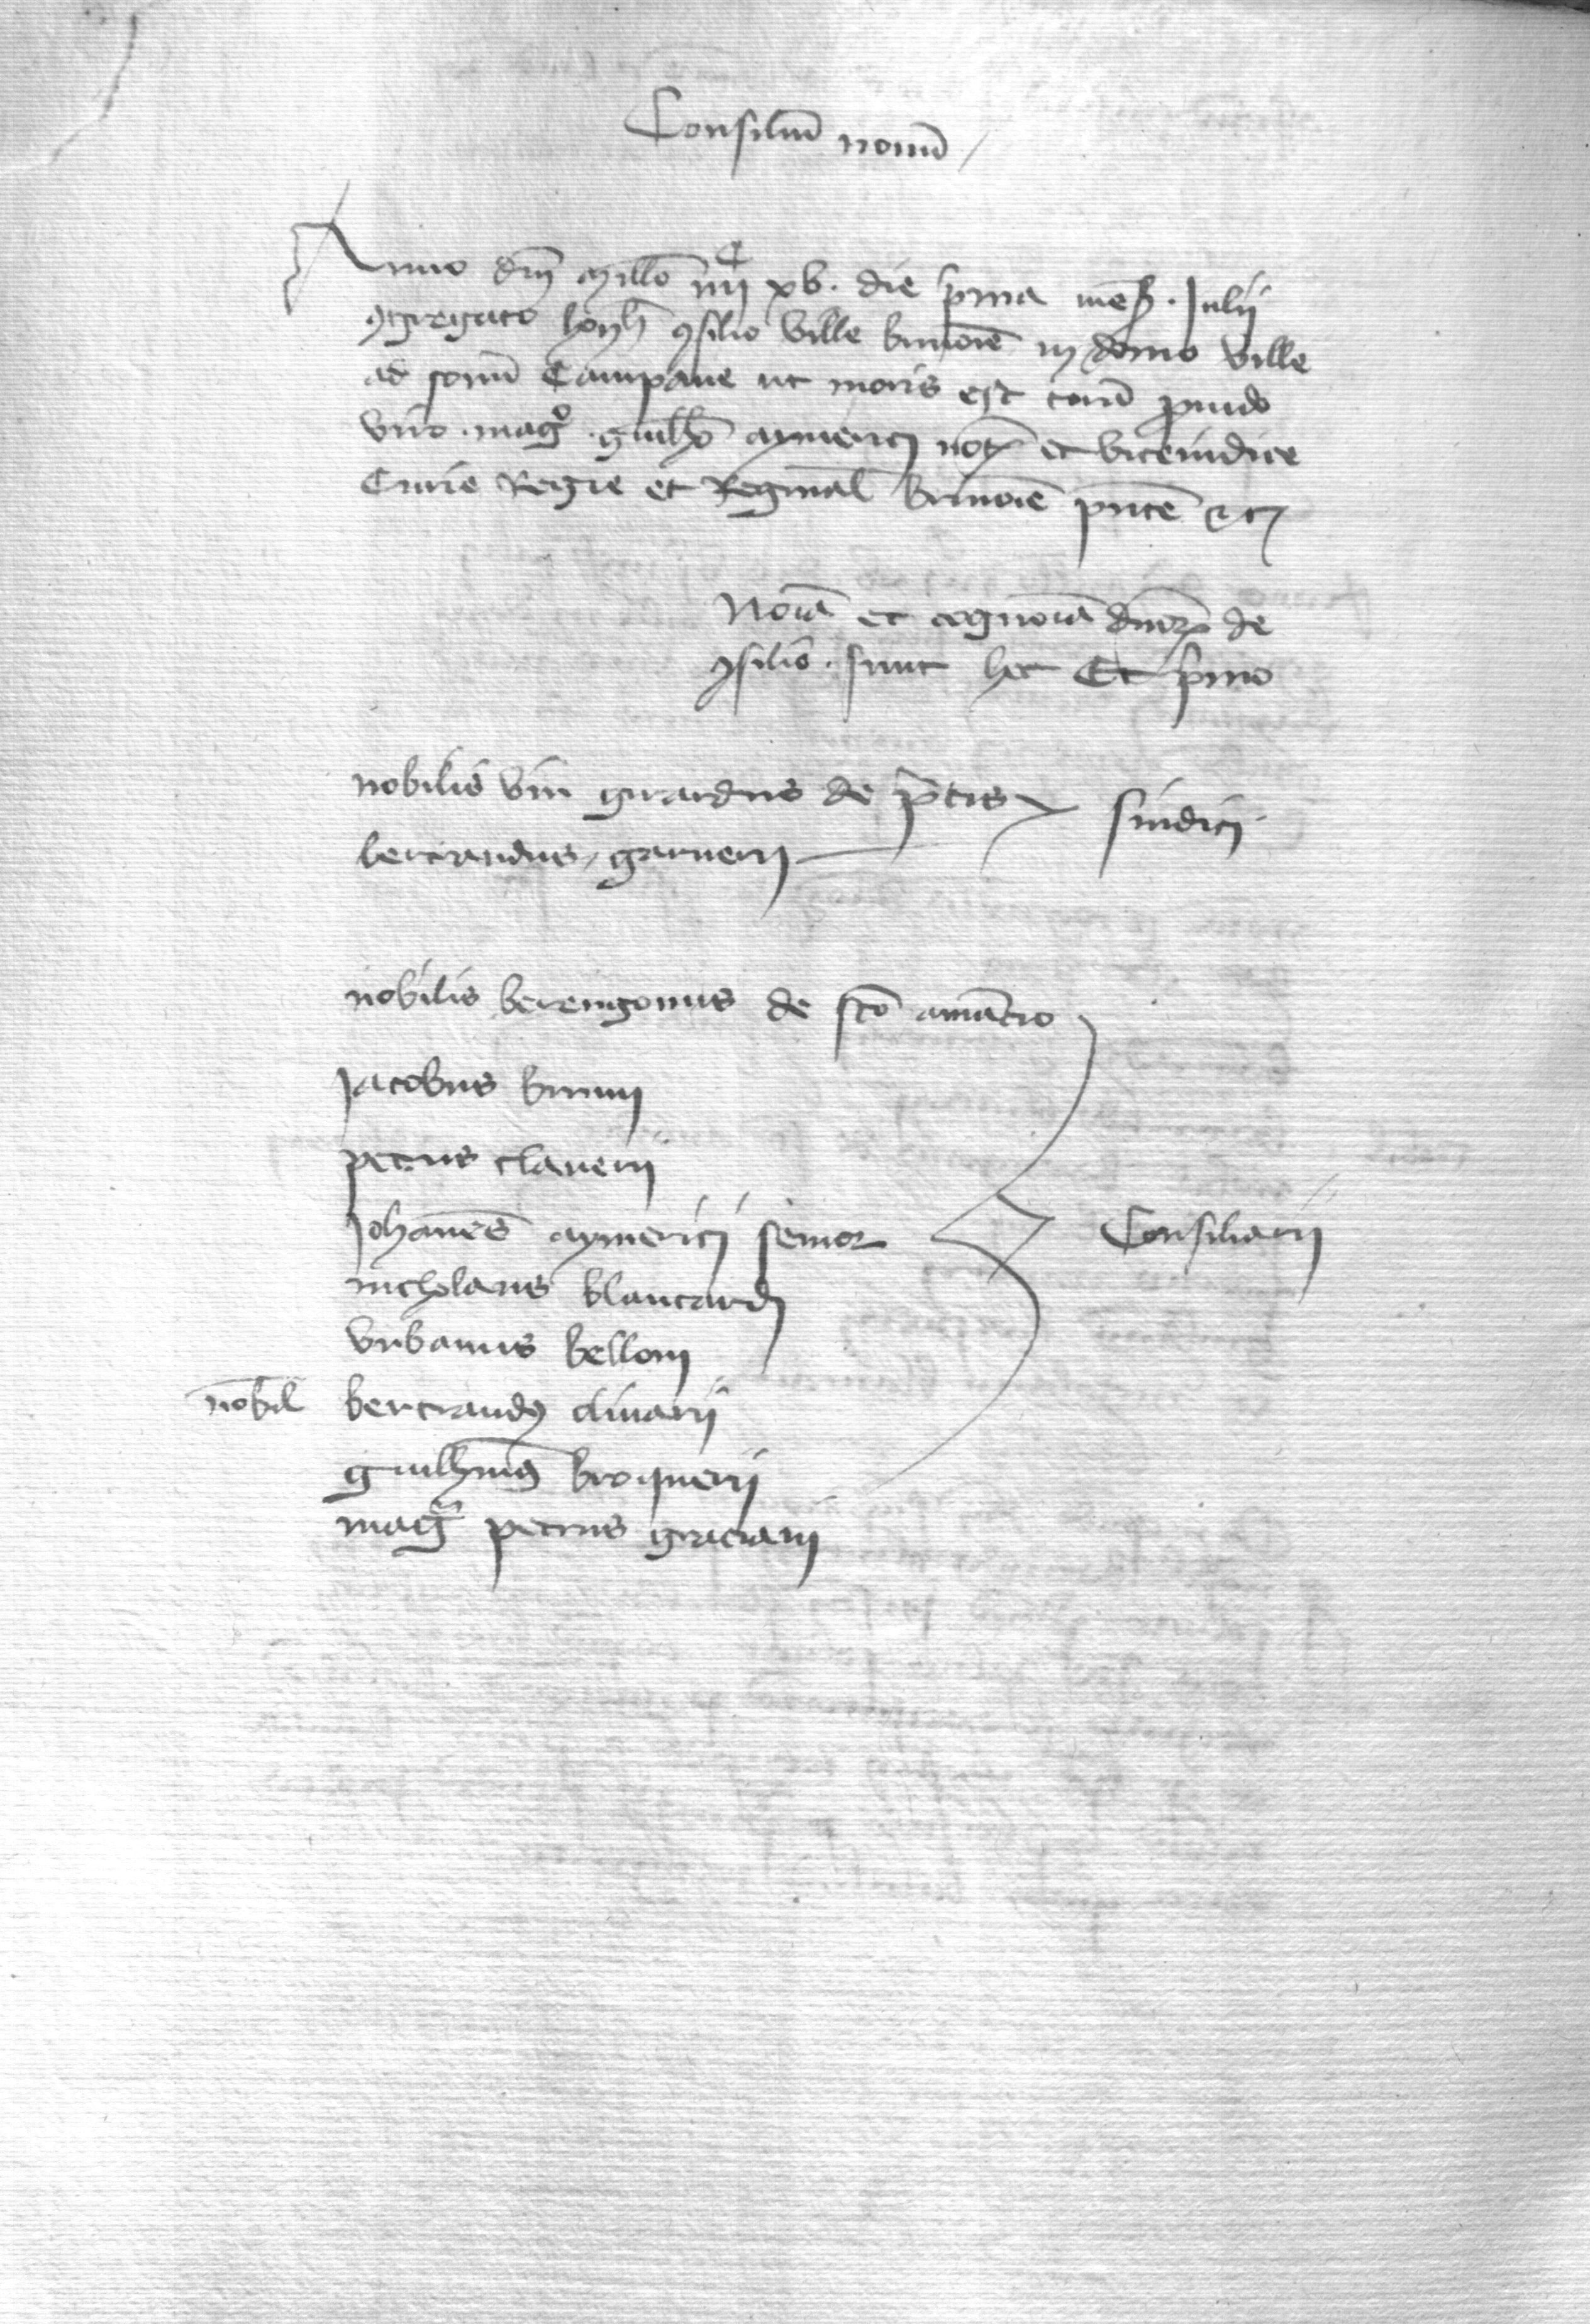 Consiliu͂ nouu͂
Anno dn͂i millo͂ iiij C xv. die p͂ma me͂s. Julii
ꝯgregato hon͂h ꝯsilio ville brinonie͂ in domo ville
ad sonu͂ Campane ut moris est cora͂ ꝓuido
viro . magᵒ . guilh͂o aymerici not͂ et viceiudice
Curie Regie et Reginal͂ brinonie͂ pn͂te͂ etc
No͂ia et cogno͂ia dn͂oꝝ de
ꝯsilio . sunt hec Et p͂mo
nobilis viri girardus de p͂tis
bertrandus garnerij
sindici
nobilis berengonus de sc͂o ama͂cio
Jacobus brunij
petrus clauerij
Joha͂nes aymericij senior
nicholaus blancardj
vrbanus bellonj
nobil͂ bertrandꝰ oliuarij
guilhm͂ꝰ broquerij
mag͂ petrus gracianj
Consiliarij